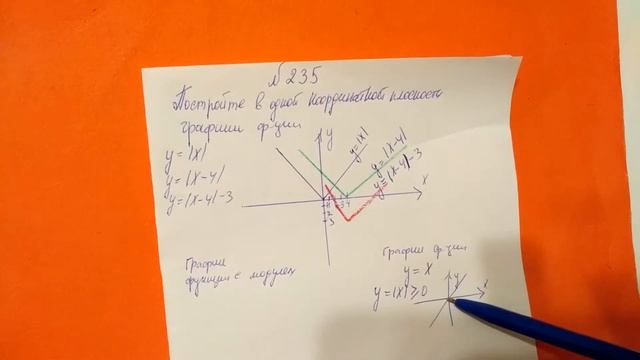 № 235
Постройте в одной координатной плоскости
графики ф-ции
y = |x|
y = |x-4|
y = |x-4|-3
y
y = |x|
y = |x-4|
y = |x-4|-3
x
1
2
3
3 4
График
функции с модулем
График ф-ции
y = x
y = |x| ≥ 0
y
x